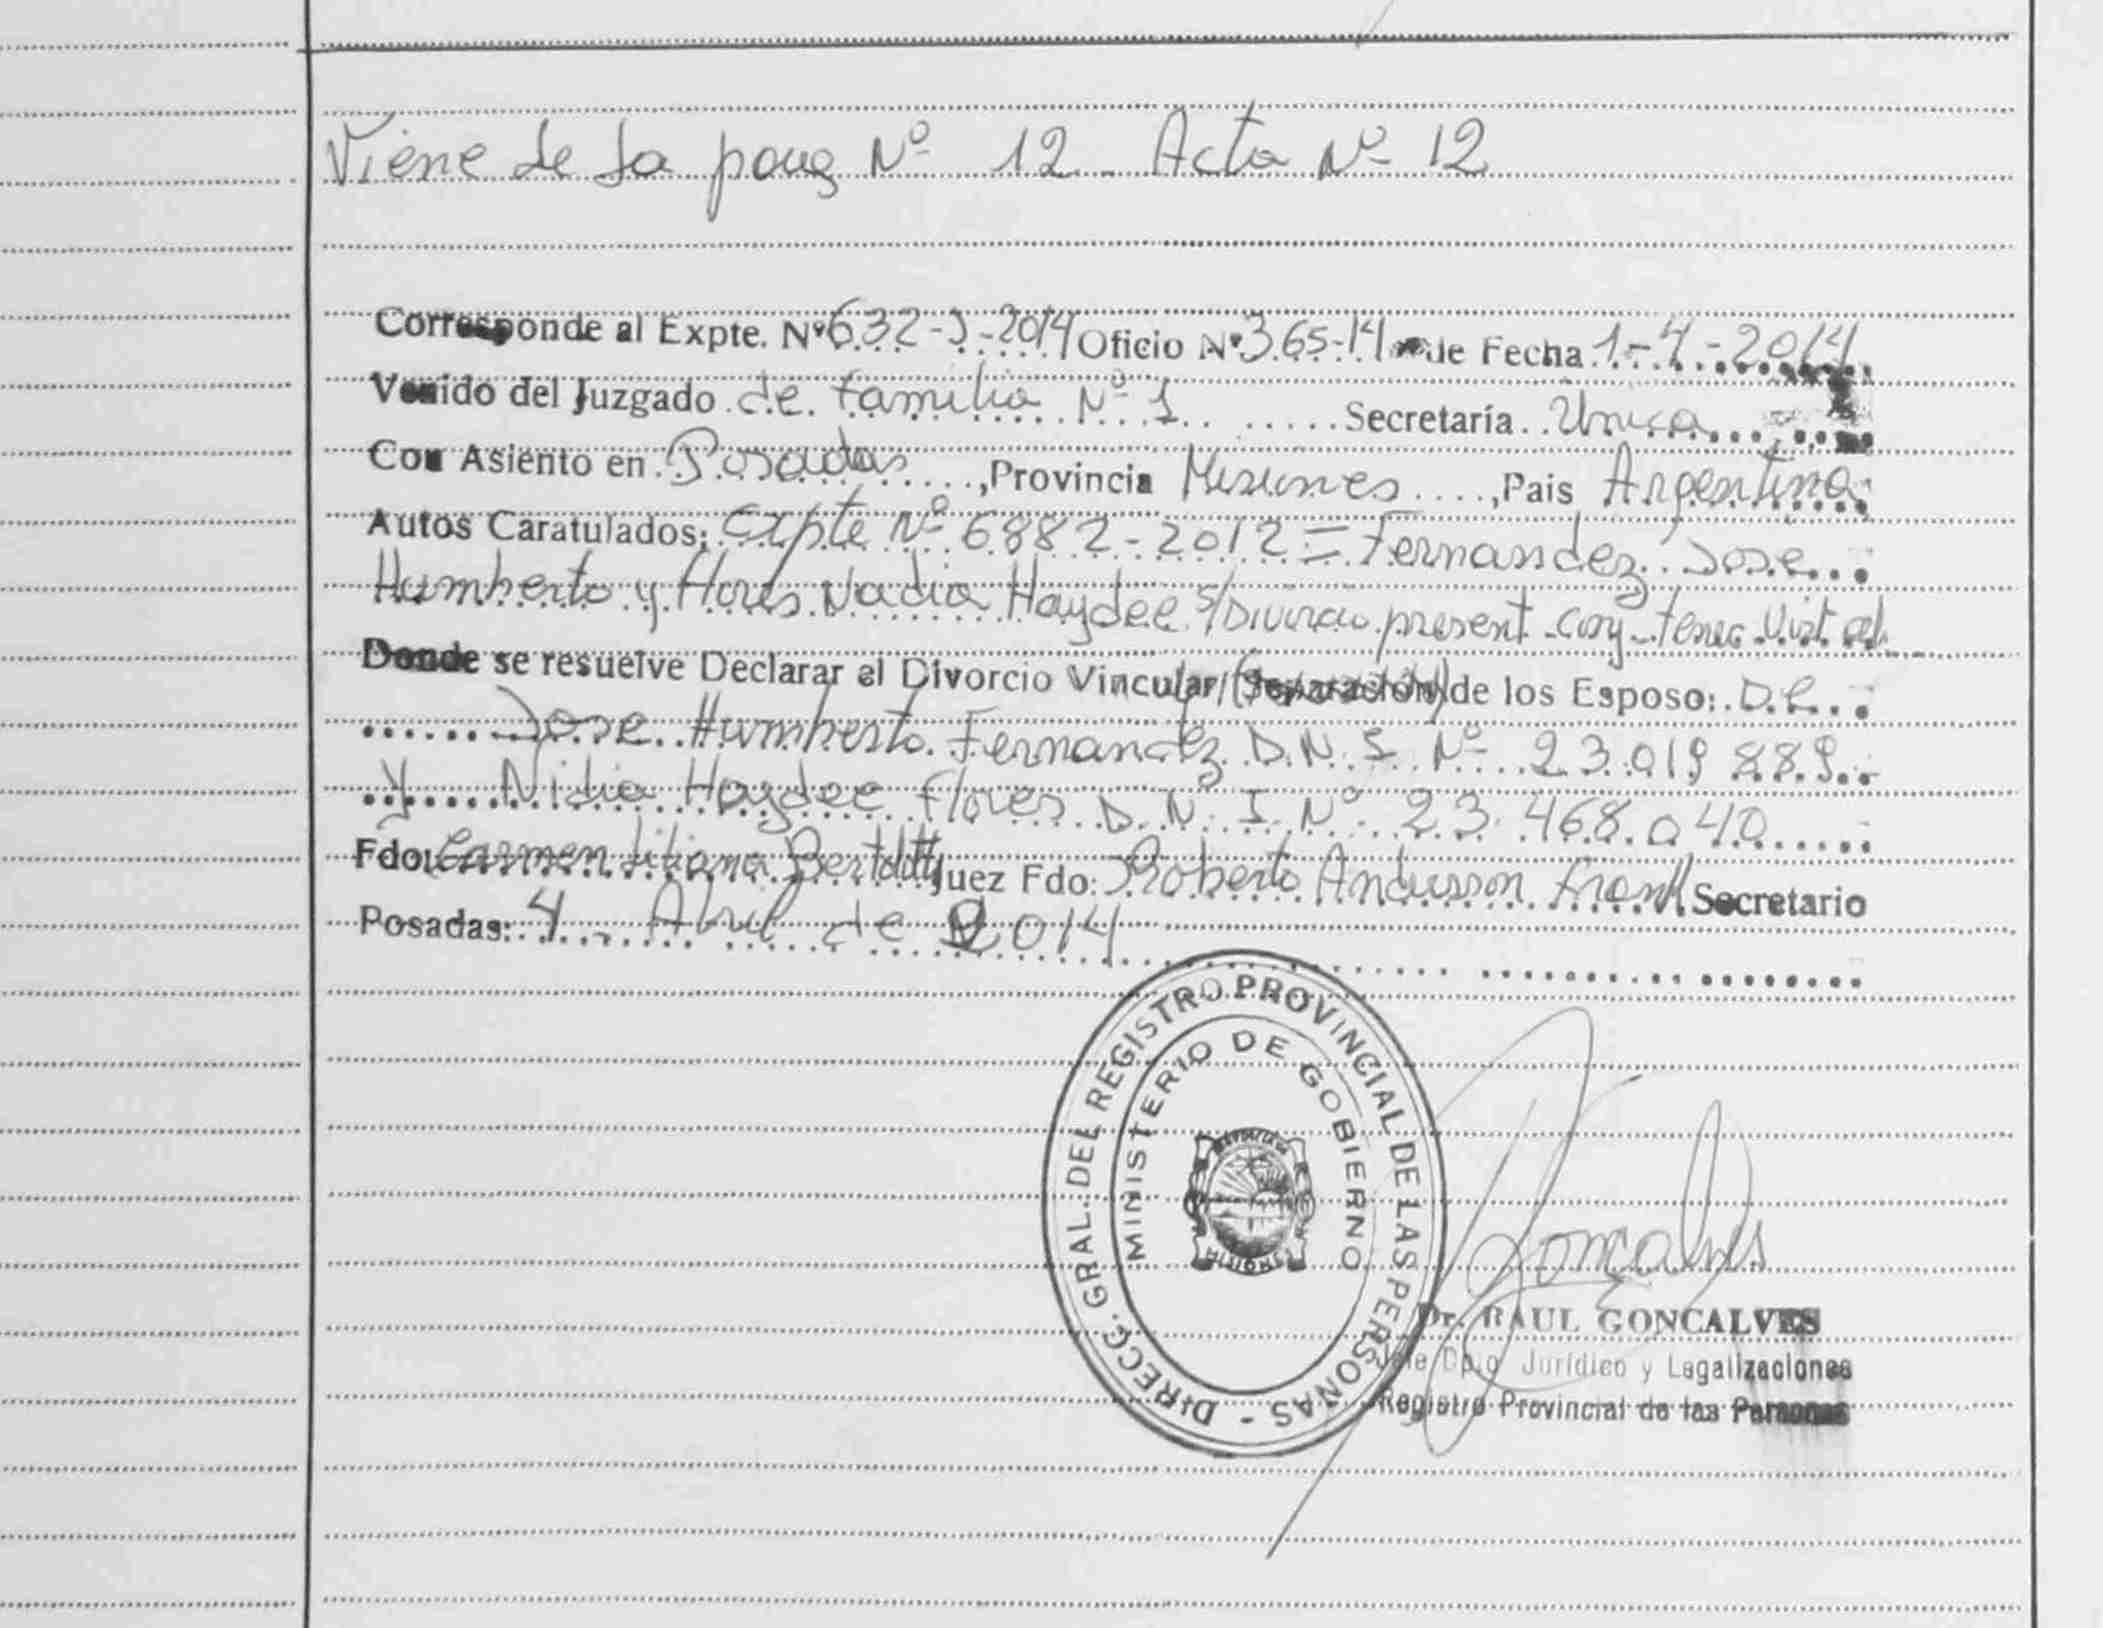 Viene de la pag Nº 12. Acta Nº 12
Corresponde al Expte. Nº 632-J-2014 Oficio Nº 365-14 de Fecha 1-4-2014
Venido del Juzgado de Familia Nº 1 Secretaría Unica
Con Asiento en Posadas, Provincia Misiones, Pais Argentina
Autos Caratulados: Expte Nº 6882-2012 = Fernandez Jose
Humberto y Flores Nadia Haydee s/Divorcio present. conj-tenec. Visit al.
Donde se resuelve Declarar el Divorcio Vincular (Separación) de los Esposo: D.
Jose Humberto Fernandez D.N.I Nº 23.019 889
y Nidia Haydee Flores D.N.I.Nº 23.468.040
Fdo: Carmen Liliana Juez Fdo: Roberto Andersson Frank Secretario
Posadas: 4 Abril de 2014
DIRECC. GRAL. DEL REGISTRO PROVINCIAL DE LAS PERSONAS -
MINISTERIO DE GOBIERNO
MISIONES
Goncalves
Dr. RAUL GONCALVES
Jefe Dpto Jurídico y Legalizaciones
Registro Provincial de las Personas